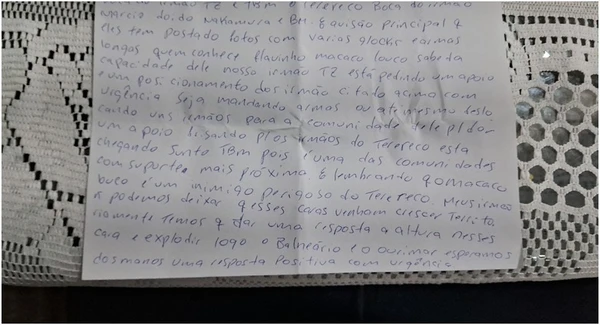 irmão TZ e TBm o Terereco Boca do irmão
Marcio do ido Nakamura e BM. E a visão principal q
eles tem postado fotos com varias glocks e armas
longas quem conhece flavinho macaco louco sabe da
capacidade dele nosso irmão TZ está pedindo um apoio
e um posicionamento dos irmão citado acima com
urgência seja mandando armas ou até mesmo deslo
cando uns irmãos para a comunidade dele p/ dar
um apoio ligando p/ os irmãos do Terereco esta
chegando Junto TBm pois é uma das comunidades
com suporte mais próxima. E lembrando q o macaco
louco é um inimigo perigoso do Terereco. Meus irmãos
ñ podemos deixar q esses caras venham crescer Territo
rialmente Temos q dar uma resposta a altura nesses
cara e explodir logo o Balneário e o Ourimar esperamos
dos manos uma resposta Positiva com urgência